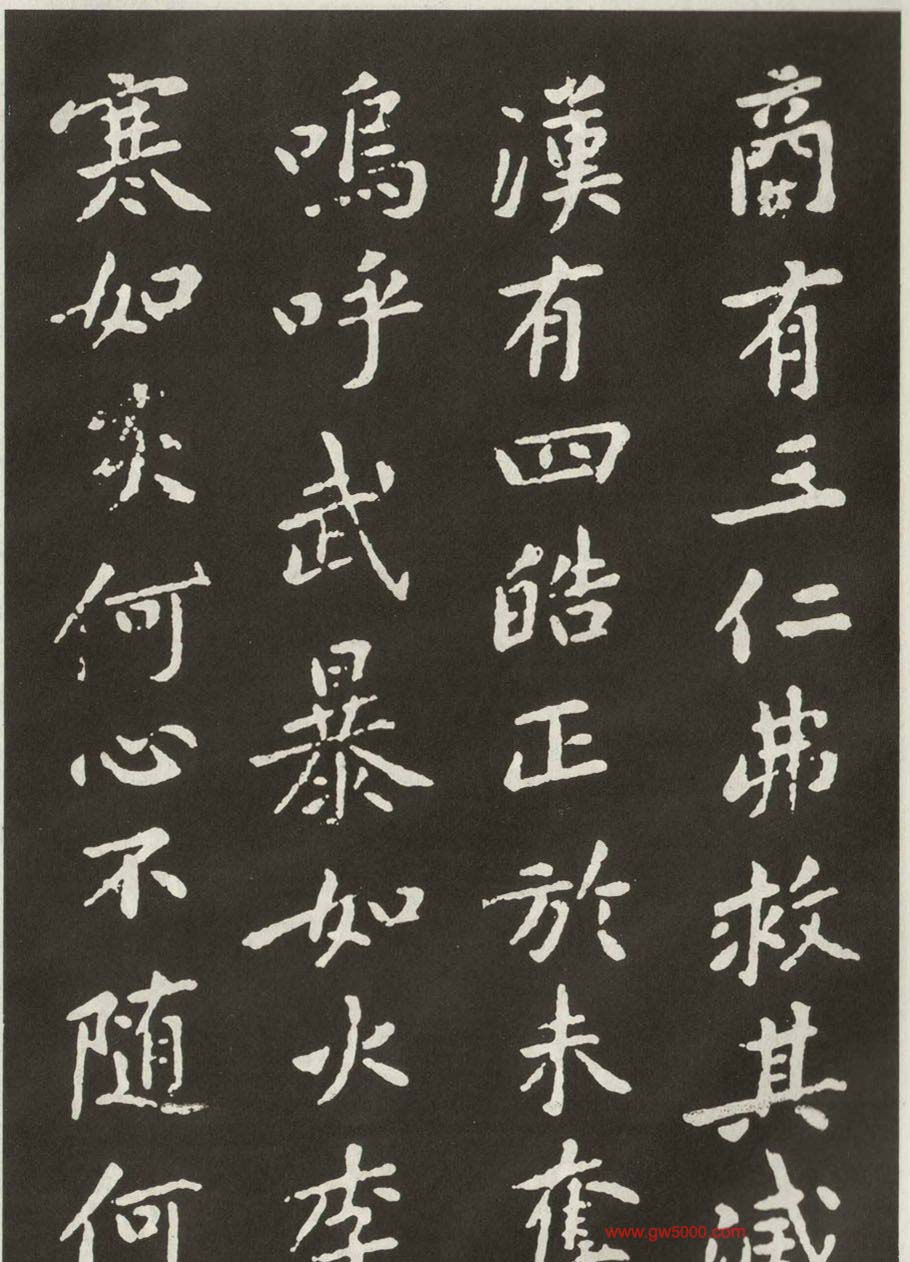 商有三仁弗救其滅
漢有四皓正於未奪
嗚呼武暴如火李
寒如灰何心不隨何
www.gw5000.com